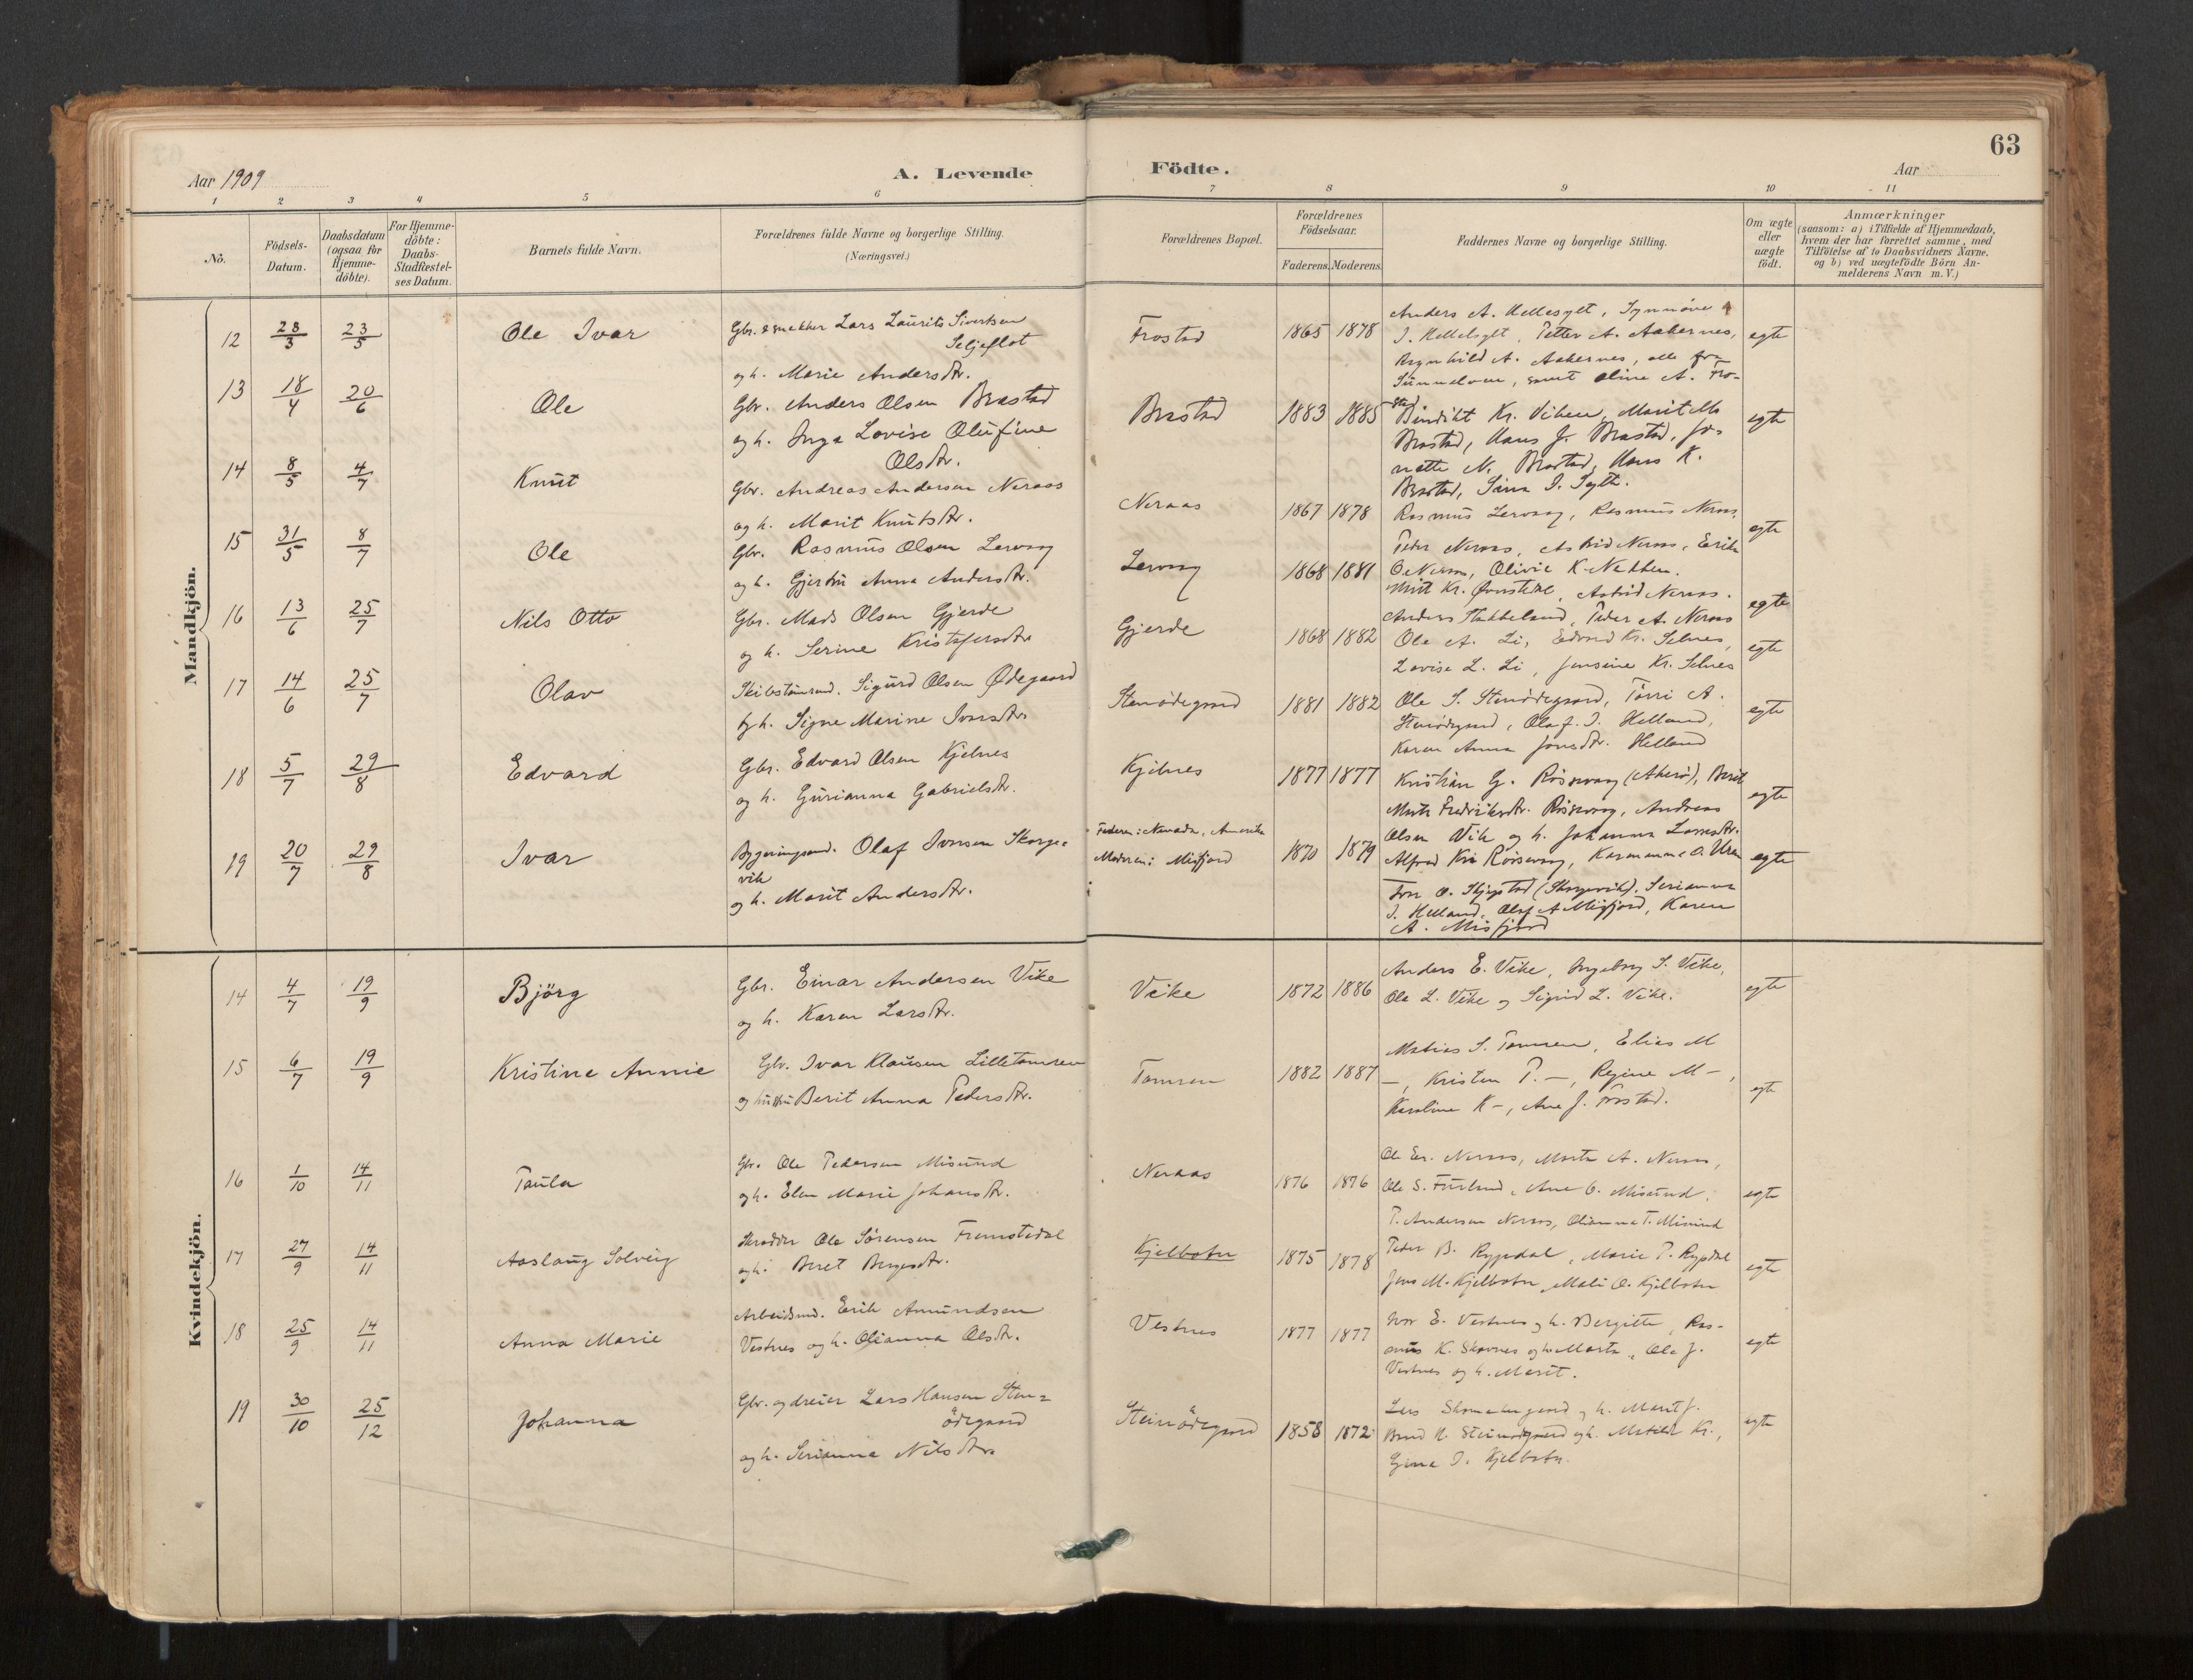 63
Aar 1909
A. Levende Födte.
Aar
1 2 3 4 5 6 7 8 9 10 11
No.
Födsels-Datum.
Daabsdatum (ogsaa for Hjemme-döbte).
For Hjemme-döbte: Daabs-Stadfæstel-ses Datum.
Barnets fulde Navn.
Forældrenes fulde Navne og borgerlige Stilling.
(Næringsvei.)
Forældrenes Bopæl.
Forældrenes Födselsaar.
Faderens. Moderens.
Faddernes Navne og borgerlige Stilling.
Om ægte eller uægte födt.
Anmærkninger
(saasom: a) i Tilfælde af Hjemmedaab, hvem der har forrettet samme, med Tilföielse af to Daabsvidners Navne. og b) ved uægtefödte Börn An-melderens Navn m. V.)
Mandkjön.
12 23/3 23/5 Ole Ivar Gbr. & snekker Lars Laurits Sivertsen
Seljeflot
og h. Marie Andersdtr.
Frostad 1865 1878 Anders A. Hellesylt, Synnöve
J. Hellesylt, Petter A. Aakernes,
Ragnhild A. Aakernes, alle fra
Sunnelven, samt Oline A. Fro-
stad
egte
13 18/4 20/6 Ole Gbr. Anders Olsen Brastad
og h. Inga Lovise Olufine
Olsdtr.
Brastad 1883 1885 Bendikt Kr. Viken, Marit M.
Brastad, Hans J. Brastad, Jo-
nette N. Brastad, Hans K.
Brastad, Sina I. Sylte.
egte
14 8/5 4/7 Knut Gbr. Andreas Andersen Neraas
og h. Marit Knutsdtr.
Neraas 1867 1878 Rasmus Lervaag, Rasmus Neraas,
Peder Neraas, Astrid Neraas, Erik
O. Neraas, Olivie K. Nakken.
egte
15 31/5 8/7 Ole Gbr. Rasmus Olsen Lervaag
og h. Gjertru Anna Andersdtr.
Lervaag 1868 1881
Astrid Neraas.
Anders Flakkeland, Peder A. Neraas
egte
16 13/6 25/7 Nils Otto Gbr. Mads Olsen Gjerde
og h. Serine Kristofersdtr
Gjerde 1868 1882 Ole A. Li, Edvard Kr. Selnes,
Lovise L. Li, Jensine Kr. Selnes
egte
17 14/6 25/7 Olav Skibstömmd. Sigurd Olsen Ødegaard
og h. Signe Marine Ivarsdtr
Stenödegaard 1881 1882 Ole S. Stenödegaard, Torri A.
Stenödegaard, Olaf J. Helland,
Karen Anna Jonsdtr. Helland
egte
18 5/7 29/8 Edvard Gbr. Edvard Olsen Kjelnes
og h. Gurianna Gabrielsdtr.
Kjelnes 1877 1877 Kristian G. Rösvaag (Akerö), Berit
Marta Fredriksdtr. Rösvaag, Andreas
Olsen Vik og h. Johanna Larsdtr.
Alfred Kr. Rösvaag,
egte
19 20/7 29/8 Ivar Bygningsmd. Olaf Iversen Skorge-
vik
og h. Marit Andersdtr.
Faderen: Nevada, Amerika
Moderen: Misfjord
1870 1879
(Skorgevik), Serianna
J. Helland, Olaf A Misfjord, Karen
A. Misfjord
egte
Kvindekjön.
14 4/7 19/9 Björg Gbr. Einar Andersen Vike
og h. Karen Larsdtr.
Vike 1872 1886 Anders E. Vike, Ingeborg S. Vike,
Ole L. Vike og Sigrid L. Vike.
egte
15 6/7 19/9 Kristine Annie Gbr. Ivar Klausen Lilletomren
og hustru Berit Anna Pedersdtr.
Tomren 1882 1887 Matias S. Tomren, Elias M
—, Kristen P. —, Regine M —,
Karoline K —, Ane J. Frostad.
egte
16 1/10 14/11 Paula Gbr. Ole Pedersen Misund
og h. Elen Marie Johansdtr.
Neraas 1876 1876 Ole Er. Neraas, Marta A. Neraas,
Ole S. Furlund, Ane O. Misund,
P. Andersen Neraas, Olianna T. Misund
egte
17 27/9 14/11 Aaslaug Solveig Skrædder Ole Sörensen Fremstedal
og h. Beret Bergesdtr.
Kjelbotn 1875 1878 Peder B. Rypdal, Marie P. Rypdal
Jens M. Kjelbotn, Mali O. Kjelbotn
egte
18 25/9 14/11 Anna Marie Arbeidsmd. Erik Amundsen
Vestnes og h. Olianna Olsdtr.
Vestnes 1877 1877 Ivar E. Vestnes og h. Bergitte, Ras-
mus K. Skavnes og h. Marta, Ole J.
Vestnes og h. Marit.
egte
19 30/10 25/12 Johanna Gbr. og dreier Lars Hansen Sten-
ödegaard
og h. Serianna Nilsdtr.
Steinödegaard 1858 1872 Lars og h. Marit J.
Steinödegaard og h. Matilde Kr.,
Gina I. Kjelbotn.
egte